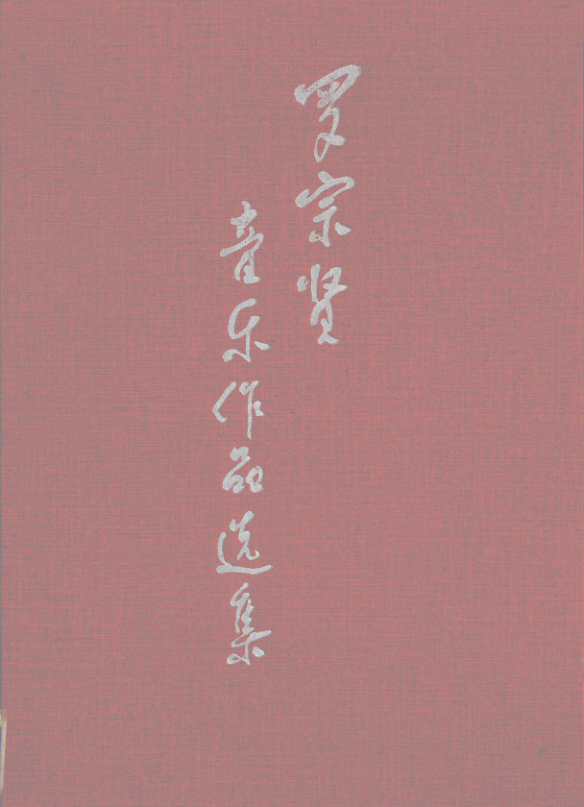 罗宗贤
音乐作品选集